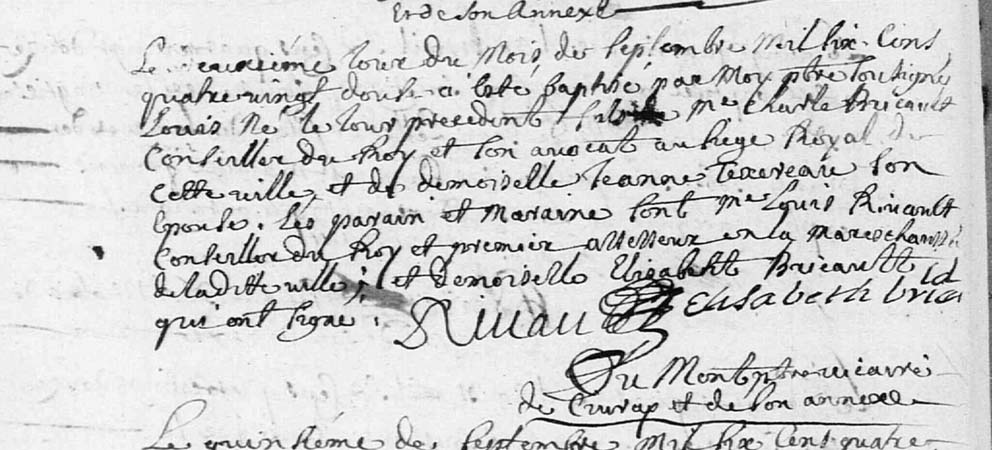 Et de son Annexe
Le deuxiéme Jour du Mois de septembre Mil six Cens
quatre vingt douse a esté baptisé par Moy ptre soussigné
Louis Né le Jour precedent fils de me Charle Bricault
Conseiller du Roy et son avocat au siege Royal de
Cette ville, et de demoiselle Jeanne Texereau son
Epouse. Les parain et Maraine sont me Louis Rivault
Conseiller du Roy et premier assesseur en la Mareschaussée
de la ditte ville; et demoiselle Elizabeth Bricault
qui ont signé. Rivault Elisabeth bric
Du Mont ptre vicaire
de et de son annexe
Le quinsiéme de septembre Mil six Cens quatre